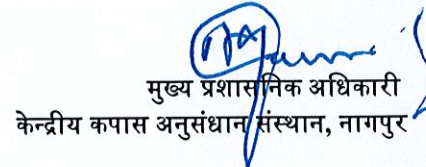 मुख्य प्रशासनिक अधिकारी
केन्द्रीय कपास अनुसंधान संस्थान, नागपुर